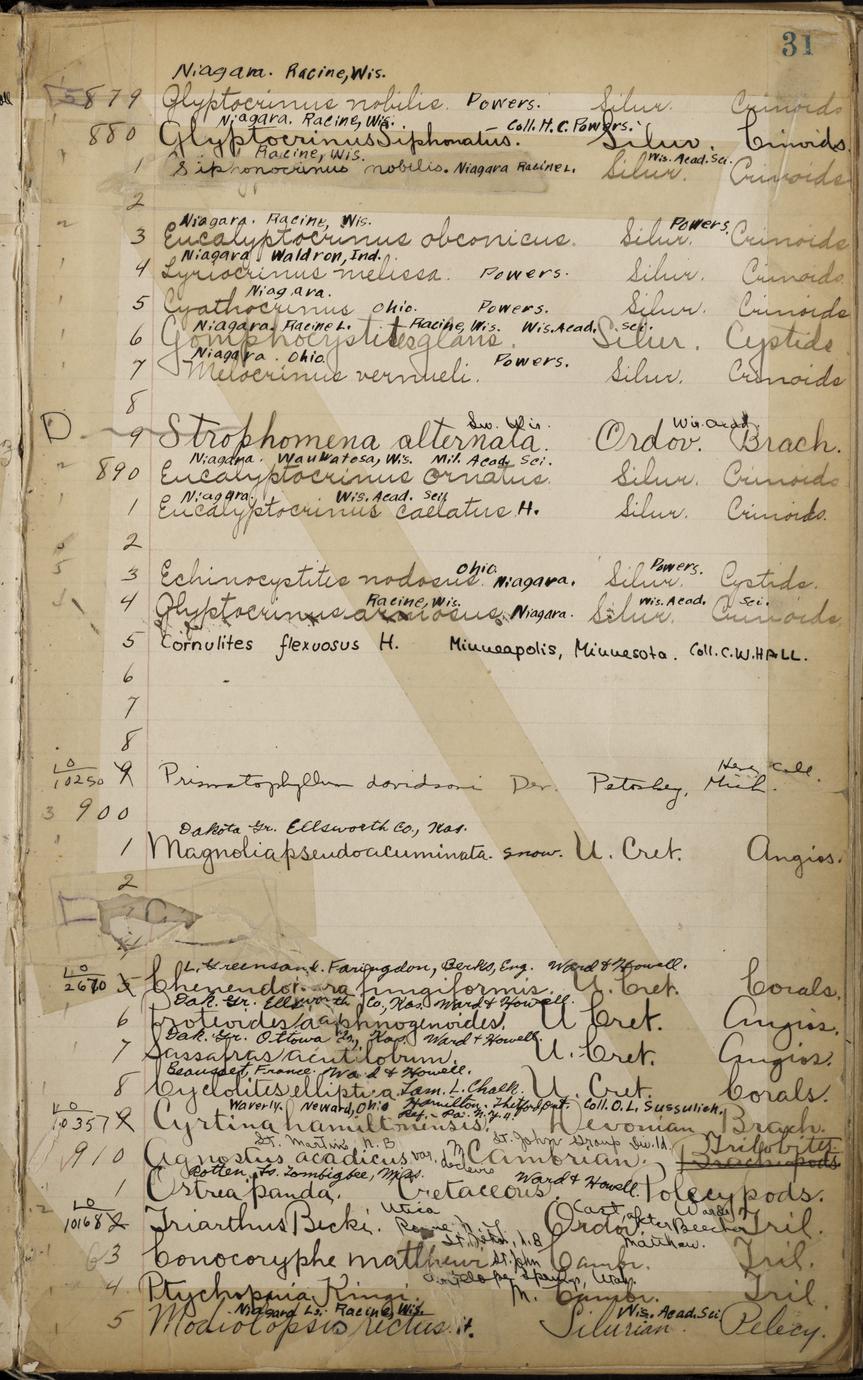 31
Niagara. Racine, Wis.
5879 Glyptocrinus nobilis. Powers. Silur. Crinoids
Niagara. Racine, Wis. Coll. H. C. Powers.
880 Glyptocrinus Siphonatus. Silur. Crinoids.
Racine, Wis. Wis. Acad. Sci.
1 Siphonocrinus nobilis. Niagara Racine L. Silur. Crinoids
2
Niagara. Racine, Wis. Powers.
3 Eucalyptocrinus obconicus. Silur. Crinoids
Niagara Waldron, Ind.
4 Lyriocrinus melissa. Powers. Silur. Crinoids
Niagara.
5 Cyathocrinus Ohio. Powers. Silur. Crinoids
Niagara. Racine L. Racine, Wis. Wis. Acad. Sci.
6 Gomphocystites glans. Silur. Cystids
Niagara. Ohio
7 Melocrinus verneuli. Powers. Silur. Crinoids
8
Sw. Wis. Wis. Acad.
D 9 Strophomena alternata. Ordov. Brach.
Niagara. Wauwatosa, Wis. Mil. Acad. Sci.
890 Eucalyptocrinus ornatus Silur. Crinoids
Niagara. Wis. Acad. Sci.
1 Eucalyptocrinus caelatus H. Silur. Crinoids.
2
Ohio Powers.
3 Echinocystites nodosus. Niagara. Silur. Cystids.
Racine, Wis. Wis. Acad. Sci.
4 Glyptocrinus armosus. Niagara. Silur. Crinoids
5 Cornulites flexuosus H. Minneapolis, Minnesota. Coll. C. W. HALL.
6
7
8
LO
10250 9 Prismatophyllum davidsoni Dev. Petoskey, Mich. Coll.
3 900
Dakota Gr. Ellsworth Co., Kas.
1 Magnolia pseudoacuminata. Snow. U. Cret. Angios.
2
L. Greensand. Faringdon, Berks, Eng. Ward & Howell.
LO
2670 5 fungiformis. U. Cret. Corals.
Dak. Gr. Ellsworth Co, Kas. Ward & Howell.
6 Protoides daphnogenoides. U Cret. Angios.
Dak. Gr. Ottowa Co., Kas. Ward & Howell.
7 Sassafras acutilobum. U. Cret. Angios.
Beausset, France. Ward & Howell.
8 Cyclolites elliptica Lam. L. Chalk. U. Cret. Corals.
Waverly. Newark, Ohio Hamilton, Coll. O. L. Sussulich.
LO
10357 9 Cyrtina hamiltonensis. Devonian. Brach.
St. Martins, N. B St. John Group Div. 1d. Trilobites
910 Agnostus acadicus var. Cambrian. Brachiopods
Rotten Ls. Tombigbee, Miss. Ward & Howell.
1 Ostrea panda. Cretaceous. Pelecypods.
Utica Cast after Beecher
LO
10168 2 Triarthus Becki. Rome N. Y. Ordov. Tril.
St. John, N. B Matthew.
3 Conocoryphe matthewi St. John Cambr. Tril.
Antelope Spring, Utah.
4 Ptychoparia Kingi. M. Cambr. Tril.
Niagara Ls. Racine, Wis. Wis. Acad. Sci
5 Modiolopsis rectus. H. Silurian Pelecy.